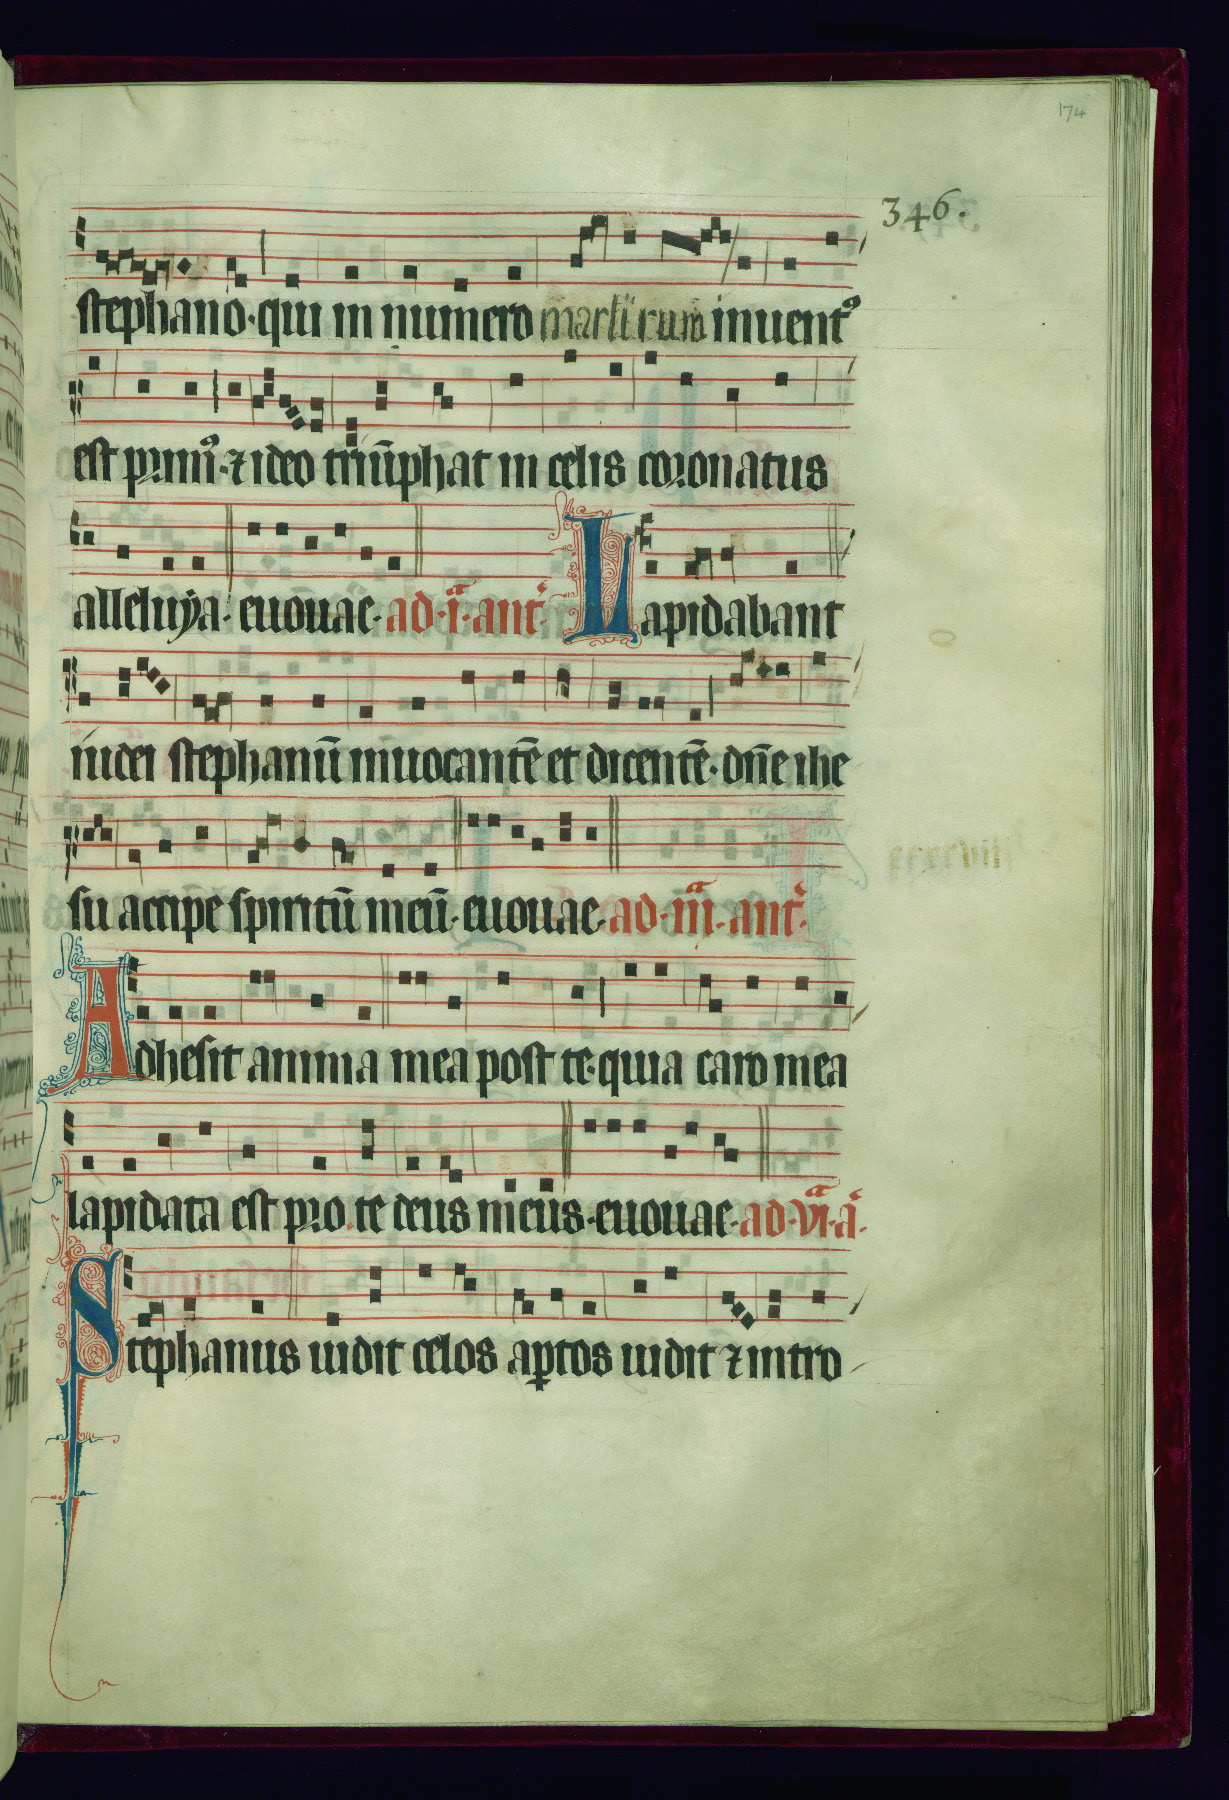 174
346.
stephano·qui in numero martirum inuentꝰ
est primꝰ·⁊ ideo triūphat in celis coronatus
alleluya· euouae· ad·i·ant· Lapidabant
iudei stephanū inuocantē et dicentē· dn̄e ihe
su accipe spiritū meū· euouae· ad·iii·ant·
Adhesit anima mea post te·quia caro mea
lapidata est pro te deus meus·euouae· ad·vi·a·
Stephanus uidit celos aꝑtos uidit ⁊ intro